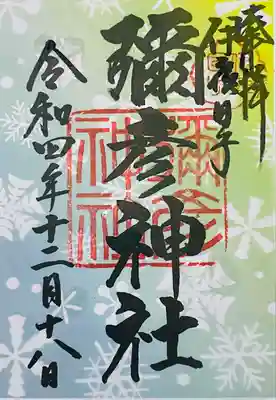 奉拝
伊夜日子
彌彦神社
令和四年十二月十八日
彌彦
神社